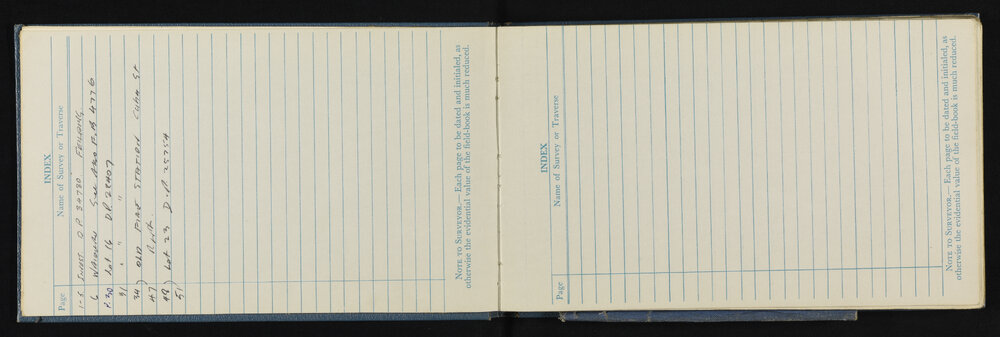 INDEX
Page Name of Survey or Traverse
1-5 D.P. 30780 FEILDING
6 See Also F.B 4776
P.30 Lot 16 DP 28407
31 " " "
34) OLD FIRE STATION Cuba St
47)
48) Lot 23 D.P. 25754
51)
NOTE TO SURVEYOR.— Each page to be dated and initialed, as
otherwise the evidential value of the field-book is much reduced.
INDEX
Page Name of Survey or Traverse
NOTE TO SURVEYOR.— Each page to be dated and initialed, as
otherwise the evidential value of the field-book is much reduced.